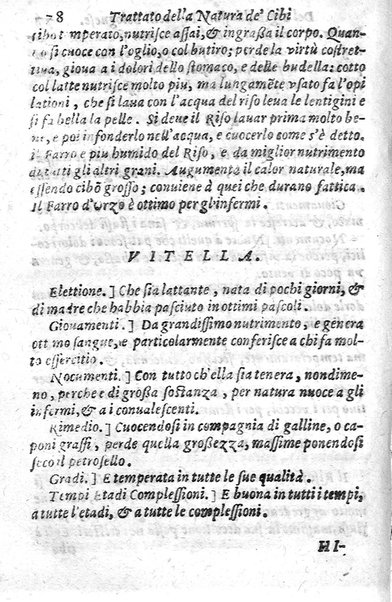 78 Trattato della Natura de' Cibi
cibo temperato, nutrisce assai, & ingraßa il corpo. Quan-
do si cuoce con l'oglio, o col butiro; perde la virtù costret-
tiua, gioua a i dolori dello stomaco, e delle budella: cotto
col latte nutrisce molto piu, ma lungamẽte vsato fa l'opi
lationi, che si laua con l'acqua del riso leua le lentigini e
si fa bella la pelle. Si deue il Riso lauar prima molto be-
ne, e poi infonderlo nell'acqua, e cuocerlo come s'è detto.
il Farro e piu humido del Riso, e da miglior nutrimento
di tutti gli altri grani. Augumenta il calor naturale, ma
essendo cibo grosso; conuiene à quei che durano fattica.
Il Farro d'Orzo è ottimo per gl'infermi.
VITELLA.
Elettione.] Che sia lattante, nata di pochi giorni, &
di madre che habbia pasciuto in ottimi pascoli.
Giouamenti.] Da grandissimo nutrimento, e genera
ottimo sangue, e particolarmente conferisce a chi fa mol-
to essercitio.
Nocumenti.] Con tutto ch'ella sia tenera, nondime-
no, perche e di großa sostanza, per natura nuoce a gli
infermi, & a i conualescenti.
Rimedio.] Cuocendosi in compagnia di galline, o ca-
poni graßi, perde quella großezza, massime ponendosi
seco il petrosello.
Gradi.] E temperata in tutte le sue qualità.
Tempi Etadi Complessioni.] E buona in tutti i tempi,
a tutte l'etadi, & a tutte le complessioni.
HI-